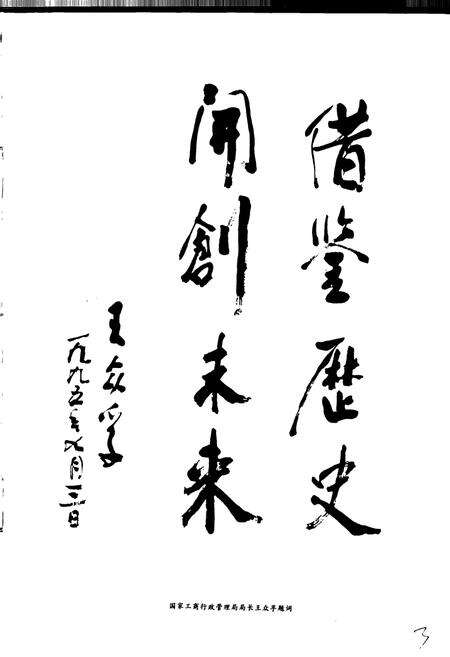 借鉴歷史
開創未来
王众孚
一九九五年七月三日
国家工商行政管理局局长王众孚题词
3